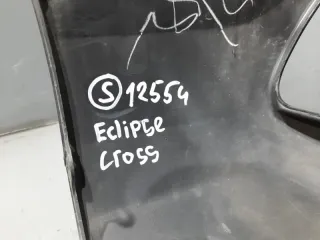 S 12554
Eclipse
cross